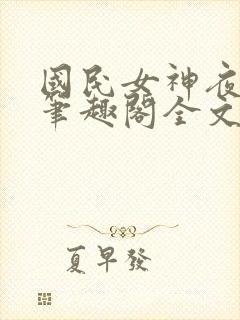 國民女神夜
筆趣閣全文
夏早發